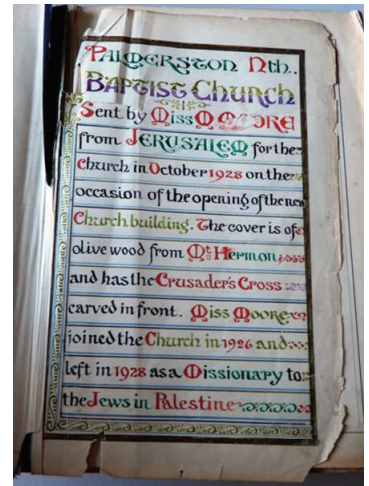 Palmerston Nth.
Baptist Church
Sent by Miss M Moore
from Jerusalem for the
Church in October 1928 on the
occasion of the opening of the new
Church building. The cover is of
olive wood from Mt Hermon
and has the Crusader's Cross
carved in front. Miss Moore
joined the Church in 1926 and
left in 1928 as a Missionary to
the Jews in Palestine